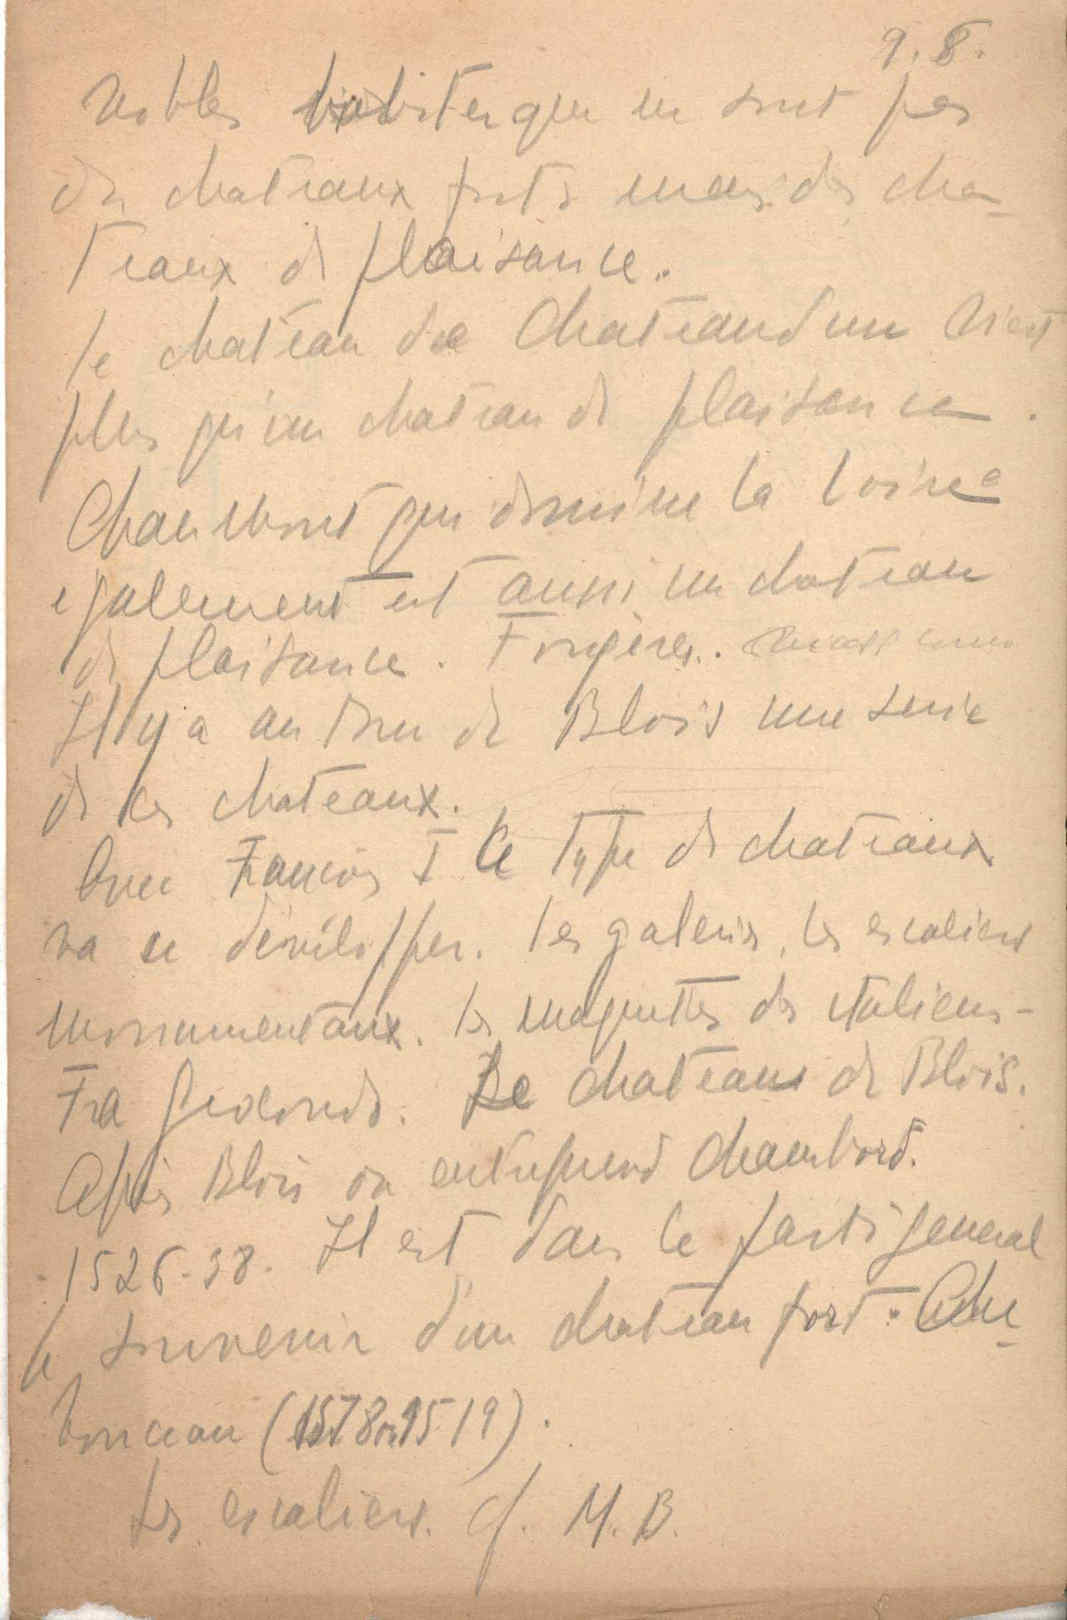 9. 8.
Nobles habiter que ne sont pas
des chateaux forts mais des cha-
teaux de plaisance.
le chateau de Chateaudun n'est
plus qu'un chateau de plaisance.
Chaumont qui domine la Loire
egalement est aussi un chateau
de plaisance. Fougères.
Il y a autour de Blois une serie
de ces chateaux.
Avec Francois I ce type de chateaux
va se développer. les galeries, les escaliers
monumentaux. les maquettes des italiens -
Fra Giocondo. Le chateau de Blois.
Après Blois on entreprend Chambord.
1526-38. Il est dans le parti general
le souvenir d'un chateau fort.
(1518 ou 1519).
Les escaliers. cf. M. B.